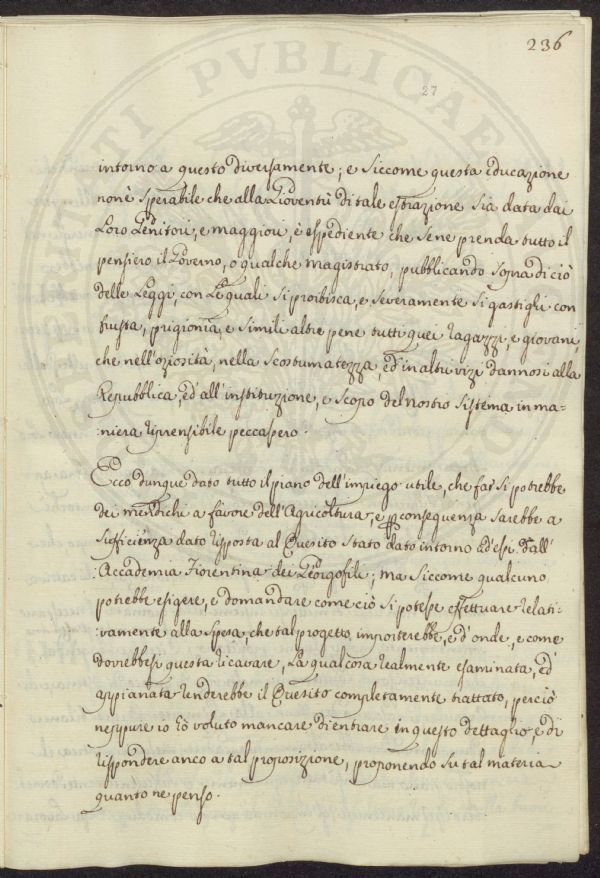 236
27
intorno a questo diversamente; e siccome questa educazione
non è sperabile che alla Gioventù di tale estrazione sia data dai
Loro Genitori, e maggiori, è espediente che se ne prenda tutto il
pensiero il Governo, o qualche magistrato, pubblicando sopra di ciò
delle Leggi, con Le quali si proibisca, e severamente si gastighi con
frusta, prigionia, e simili altre pene tutti quei ragazzi, e giovani,
che nell'oziosità, nella scostumatezza, ed in altri vizi dannosi alla
Repubblica, ed all'instituzione, e scopo del nostro sistema in ma-
:niera riprensibile peccassero.
Ecco dunque dato tutto il piano dell'impiego utile, che far si potrebbe
dei mendichi a favore dell'Agricoltura, e p consequenza sarebbe a
sufficienza dato risposta al Quesito stato dato intorno ad essi dall'
:Accademia Fiorentina dei Georgofili; ma siccome qualcuno
potrebbe esigere, e domandare come ciò si potesse effettuare relati-
:vamente alla spesa, che tal progetto importerebbe, e d'onde, e come
dovrebbesi questa ricavare, La qual cosa realmente esaminata, ed
appianata renderebbe il Quesito completamente trattato, perciò
neppure io hò voluto mancare di entrare in questo dettaglio, e di
rispondere anco a tal proposizione, proponendo su tal materia
quanto ne penso.